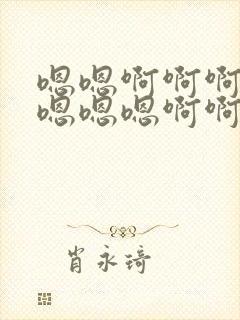 嗯嗯啊啊啊
嗯嗯嗯啊啊
肖永琦